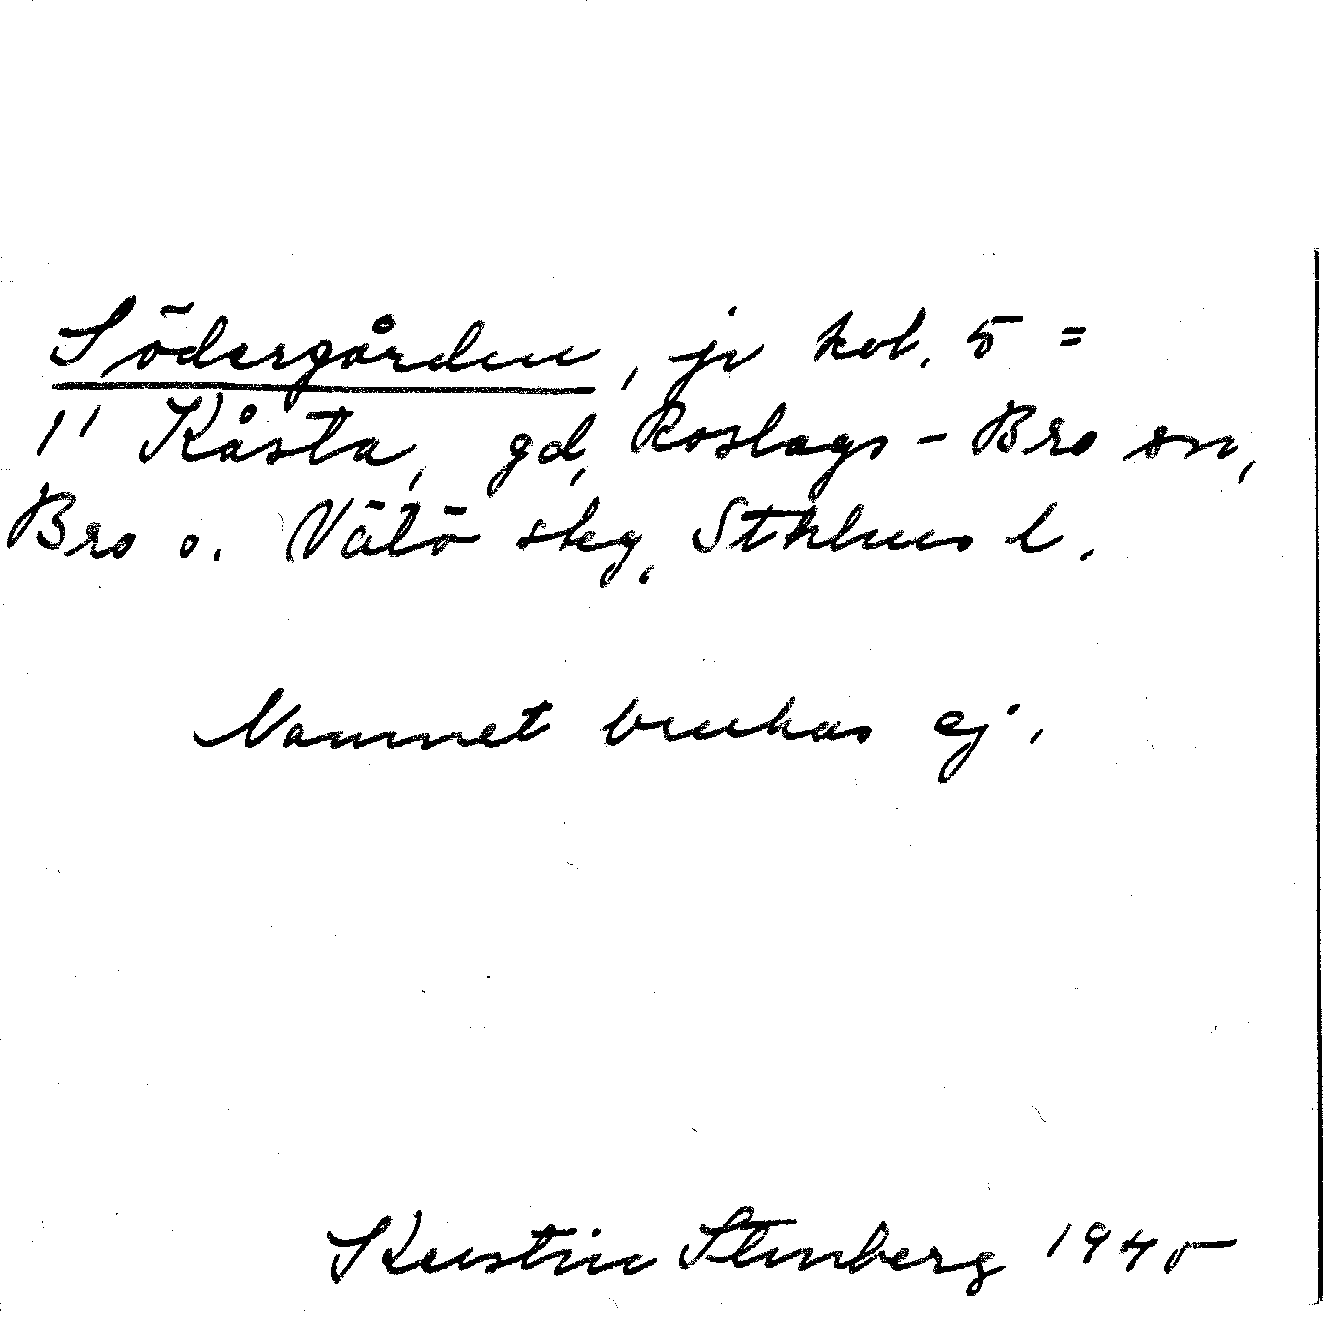 Södergården, jr kol. 5 =
1' Kåsta, gd, Roslags-Bro sn,
Bro o. Vätö skg, Sthlms l.
Namnet brukas ej.
Kerstin Stenberg 1945